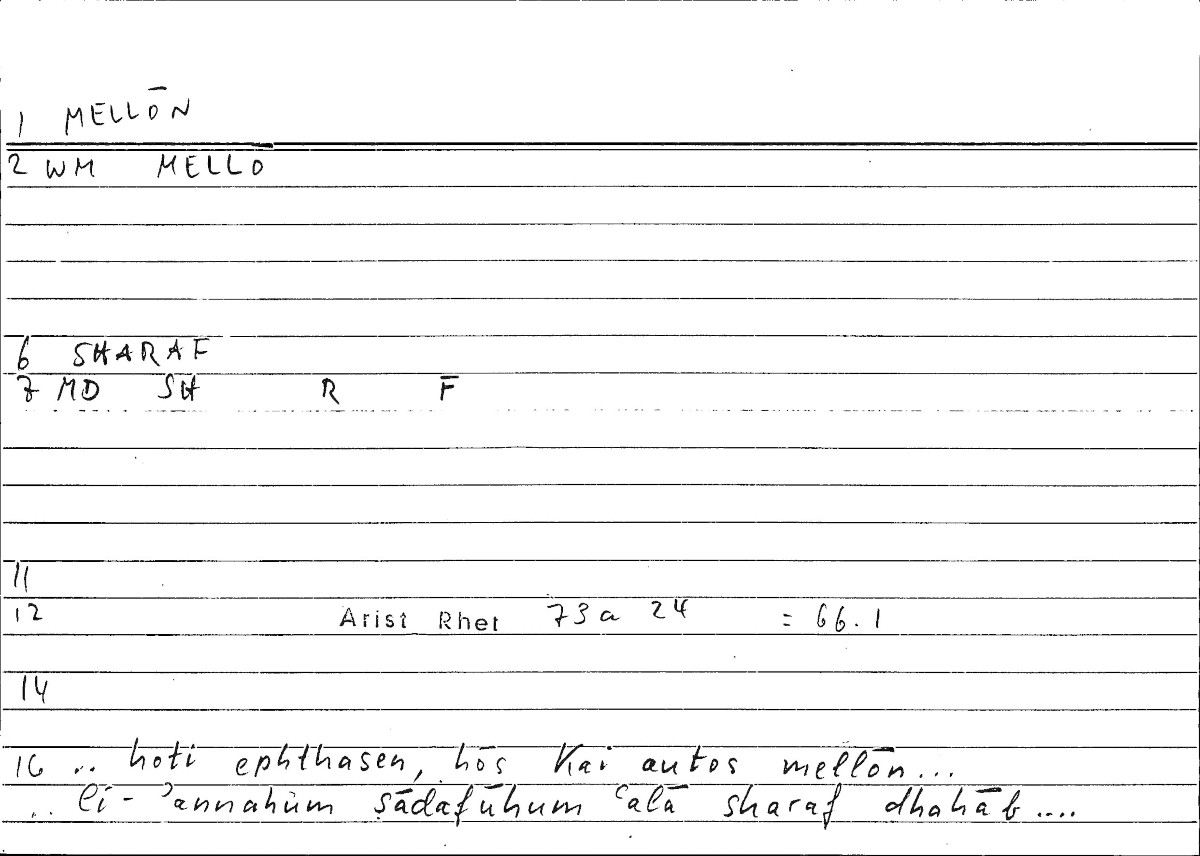 1 MELLŌN
2 WM MELLO
6 SHARAF
7 MD SH R F
11
12 Arist Rhet 73a 24 = 66.1
14
16 .. hoti ephthasen, hōs kai autos mellōn...
.. li-ʾannahum ṣādafūhum ʿalā sharaf dhahāb....